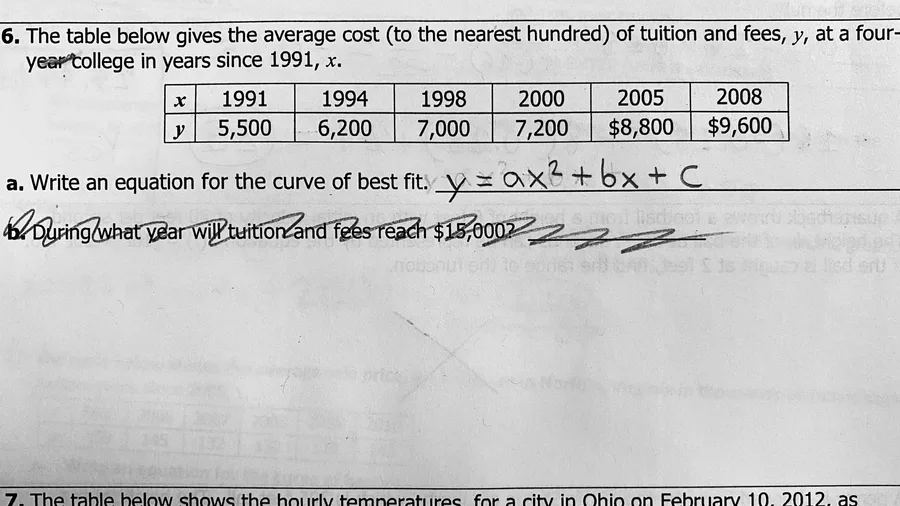 6. The table below gives the average cost (to the nearest hundred) of tuition and fees, y, at a four-
year college in years since 1991, x.
x 1991 1994 1998 2000 2005 2008
y 5,500 6,200 7,000 7,200 $8,800 $9,600
a. Write an equation for the curve of best fit. y = ax² + bx + c
b. During what year will tuition and fees reach $15,000?
7. The table below shows the hourly temperatures, for a city in Ohio on February 10, 2012, as